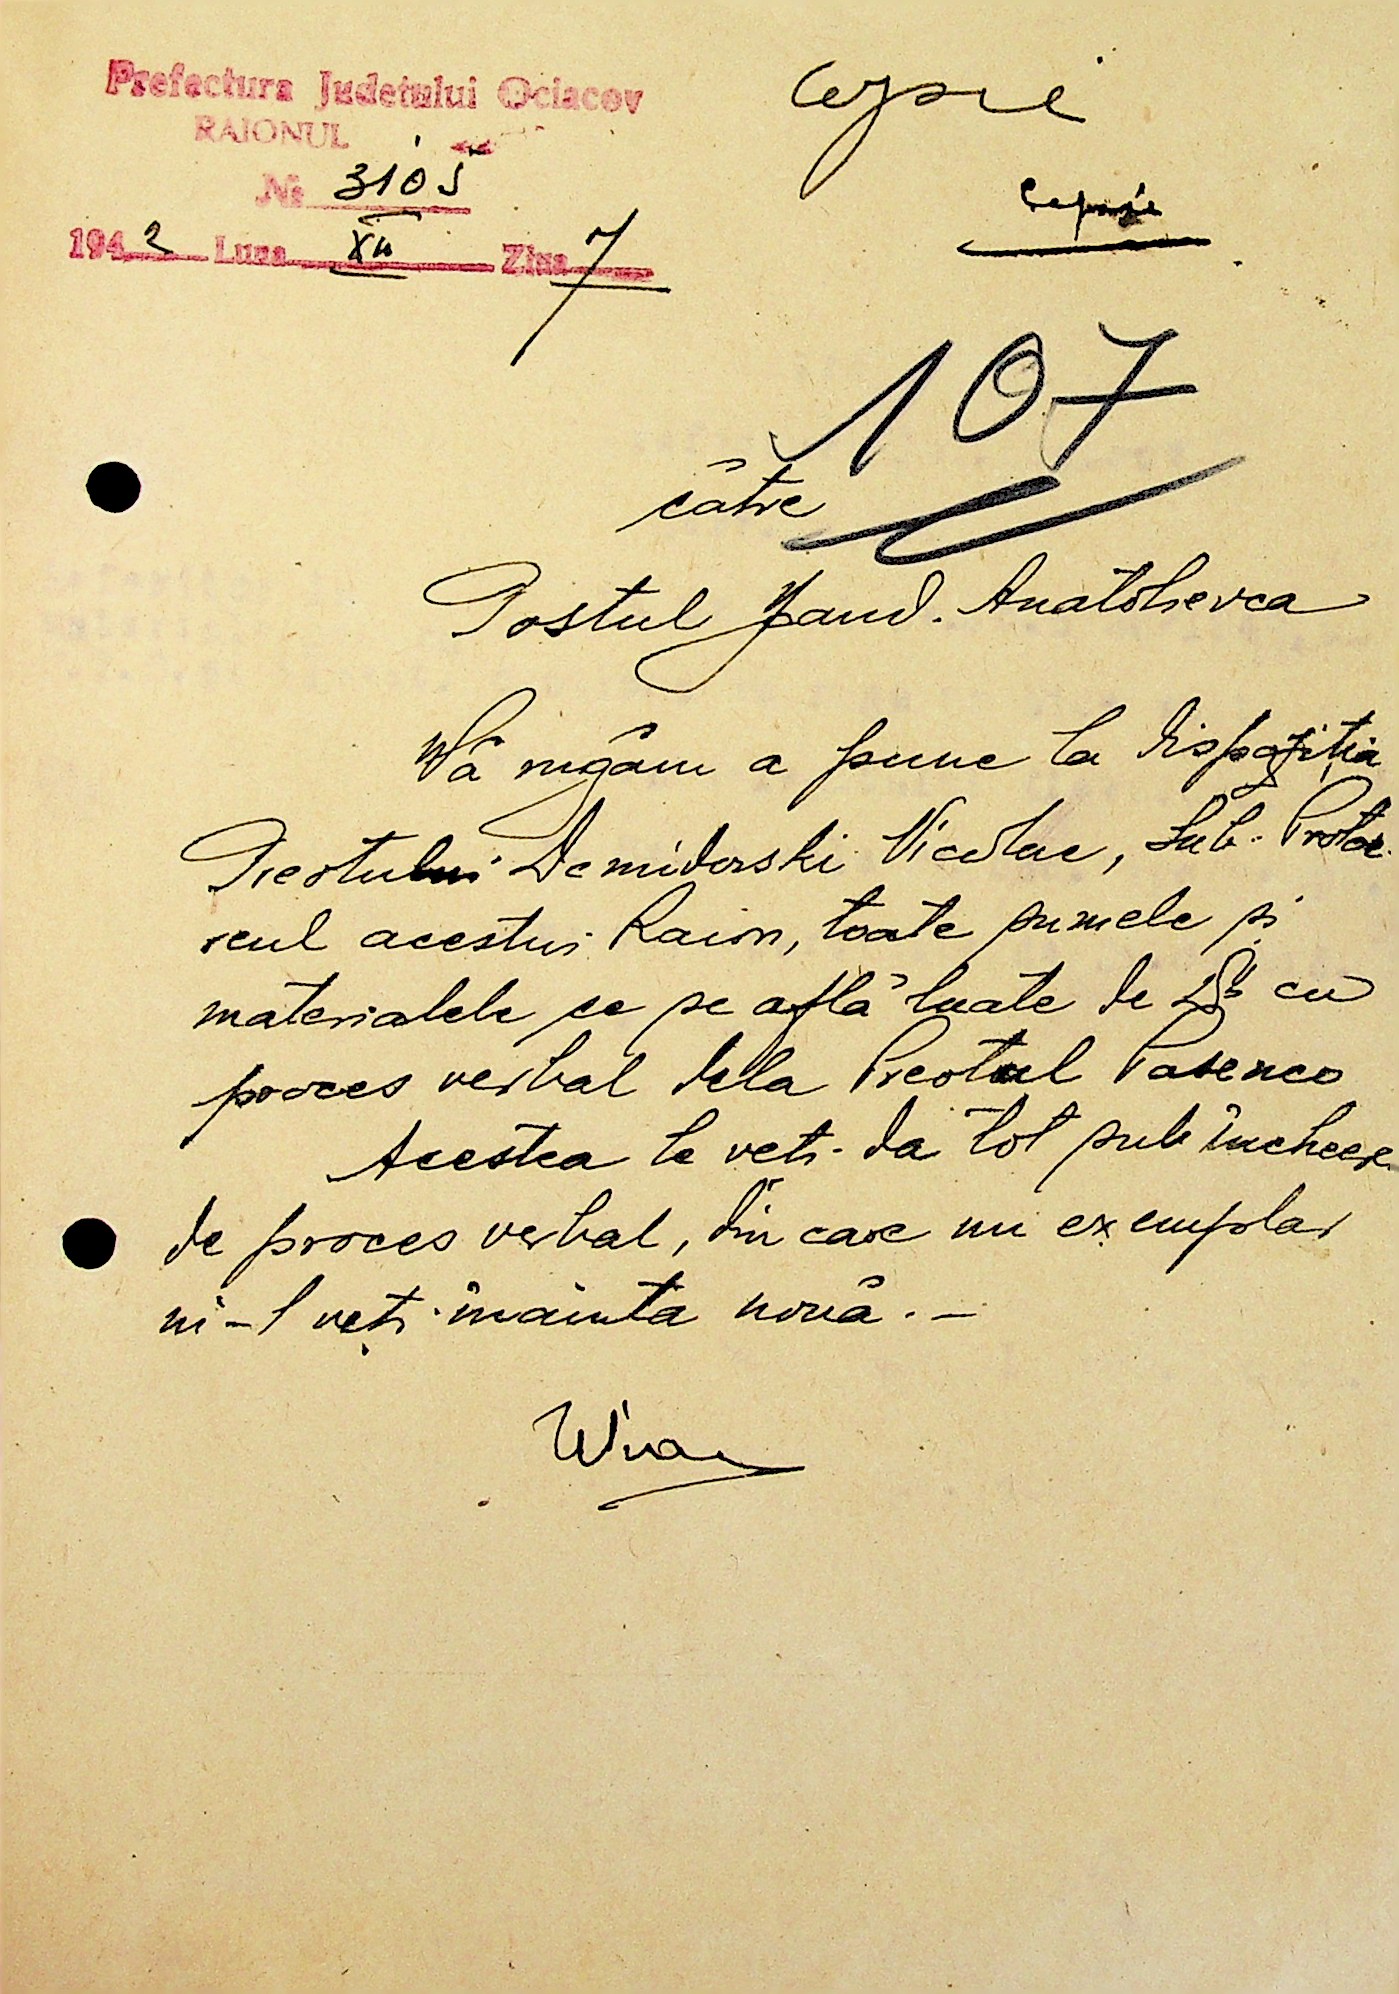 Prefectura Judetului Ociacov
RAIONUL
No 3105
1942 Luna XII Ziua 7
Copie
Copie
107
către
Postul Jand. Anatolievca
Vă rugăm a pune la dispoziția
Preotului Demidovski Nicolae, Sub. Protoe
reul acestui Raion, toate sumele și
materialele ce se află luate de Dvs cu
proces verbal dela Preotul Pasenco
Acestea le veti da tot sub încheere
de proces verbal, din care un exemplar
ni-l veți înainta nouă. –